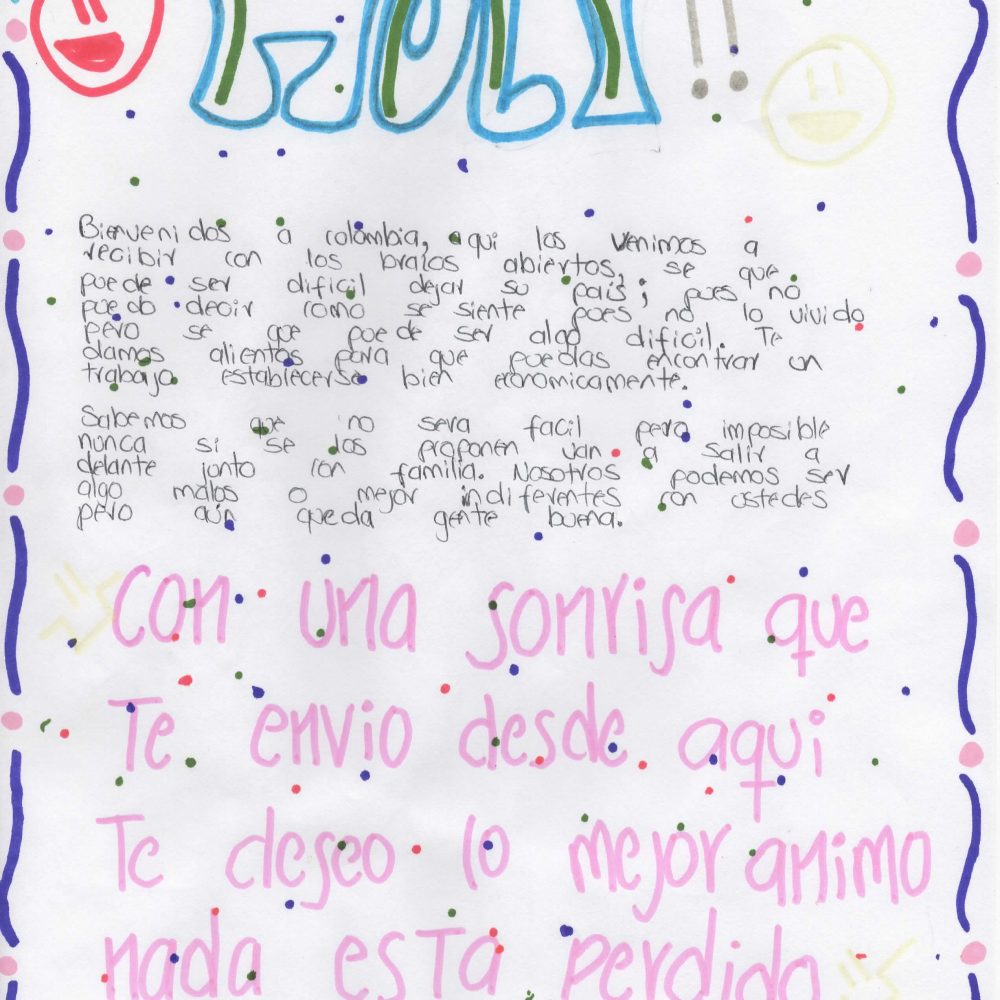 HOLI!!
Bienvenidos a colombia, aqui los venimos a
recibir con los brazos abiertos, se que
puede ser dificil dejar su pais; pues no
puedo decir como se siente pues no lo vivido
pero se que puede ser algo dificil. Te
damos alientos para que puedas encontrar un
trabajo establecerse bien economicamente.
Sabemos que no sera facil pero imposible
nunca si se los proponen van a salir a
delante junto con familia. Nosotros podemos ser
algo malos o mejor indiferentes con ustedes
pero aún queda gente buena.
con una sonrisa que
Te envio desde aqui
Te deseo lo mejor animo
nada esta perdido